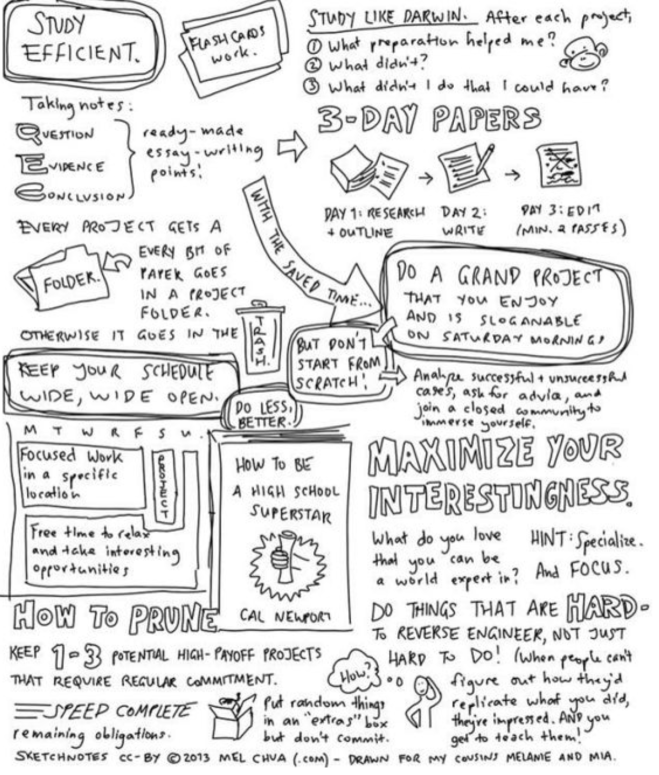 STUDY
EFFICIENT.
FLASHCARDS
work.
STUDY LIKE DARWIN. After each project,
① What preparation helped me?
② What didn't?
③ What didn't I do that I could have?
Taking notes:
QUESTION
EVIDENCE
CONCLUSION
ready-made
essay-writing
points!
3-DAY PAPERS
DAY 1: RESEARCH
+ OUTLINE
DAY 2:
WRITE
DAY 3: EDIT
(MIN. 2 PASSES)
EVERY PROJECT GETS A
FOLDER.
EVERY BIT OF
PAPER GOES
IN A PROJECT
FOLDER.
OTHERWISE IT GOES IN THE
TRASH.
WITH THE SAVED TIME...
DO A GRAND PROJECT
THAT YOU ENJOY
AND IS SLOGANABLE
ON SATURDAY MORNINGS
BUT DON'T
START FROM
SCRATCH!
Analyze successful + unsuccessful
cases, ask for advice, and
join a closed community to
immerse yourself.
KEEP YOUR SCHEDULE
WIDE, WIDE OPEN.
DO LESS,
BETTER.
M T W R F S U.
Focused Work
in a specific
location
PROTECT
Free time to relax
and take interesting
opportunities
HOW TO BE
A HIGH SCHOOL
SUPERSTAR
CAL NEWPORT
MAXIMIZE YOUR
INTERESTINGNESS.
What do you love
that you can be
a world expert in?
HINT: Specialize.
And FOCUS.
HOW TO PRUNE
KEEP 1-3 POTENTIAL HIGH-PAYOFF PROJECTS
THAT REQUIRE REGULAR COMMITMENT.
SPEED COMPLETE
remaining obligations.
Put random things
in an "extras" box
but don't commit.
DO THINGS THAT ARE HARD-
TO REVERSE ENGINEER, NOT JUST
HARD TO DO! (When people can't
figure out how they'd
replicate what you did,
they're impressed. AND you
get to teach them!
How?
SKETCHNOTES CC-BY © 2013 MEL CHUA (.COM) - DRAWN FOR MY COUSINS MELANIE AND MIA.